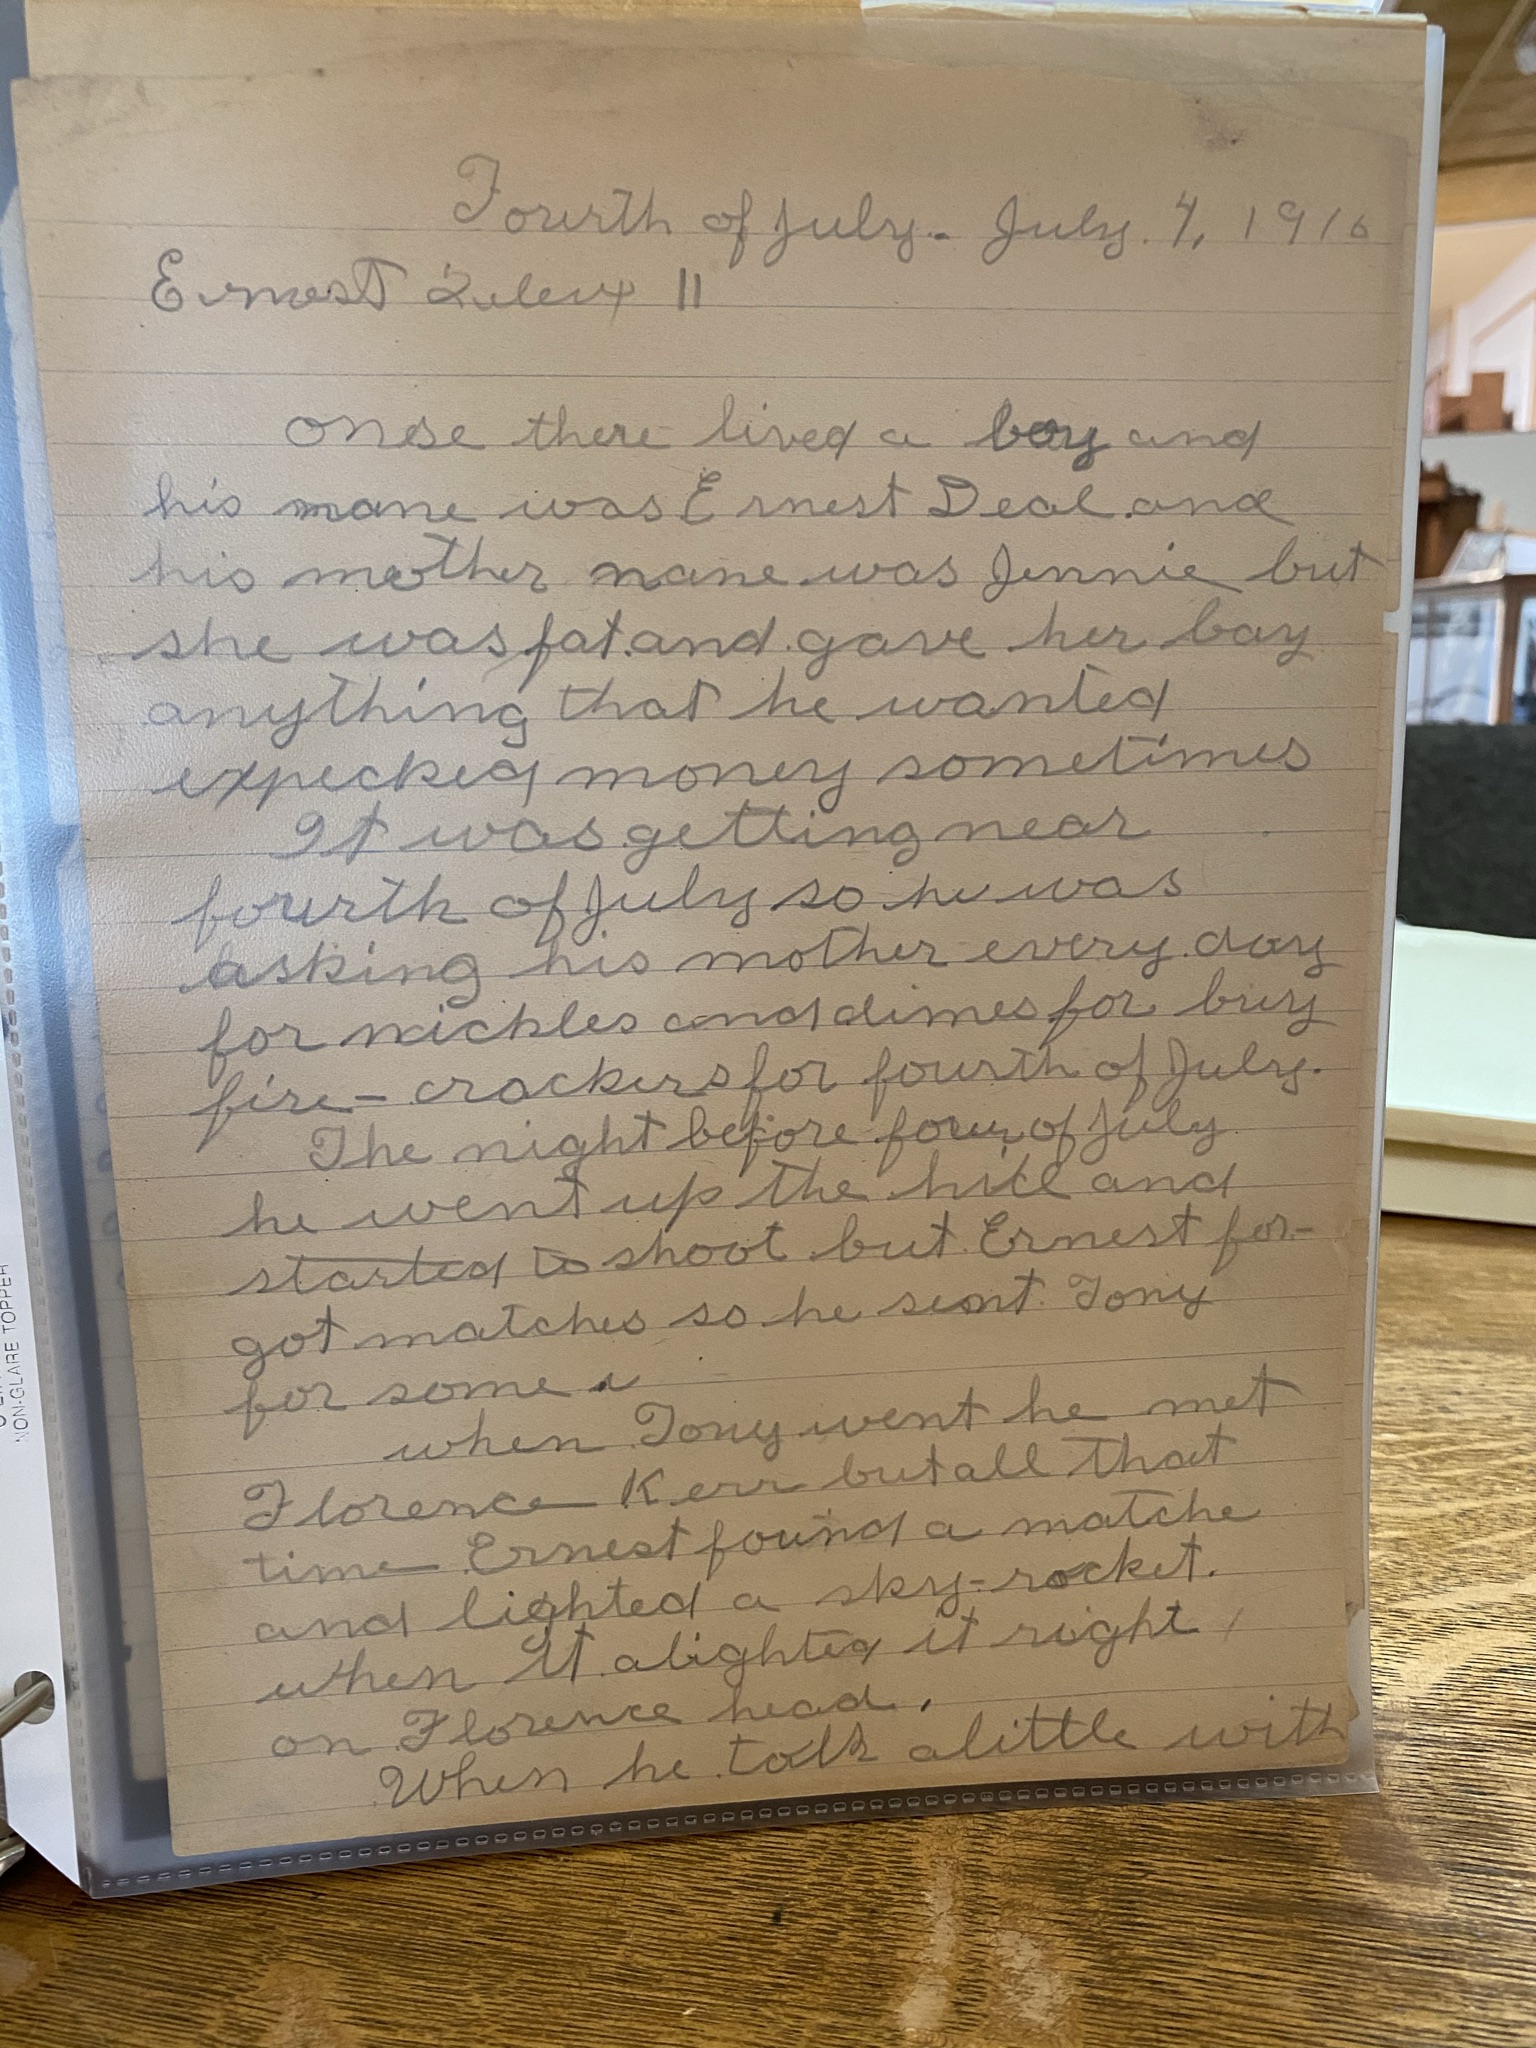 Fourth of July. July. 4, 1916
Ernest 11
onese there lived a boy and
his mane was Ernest Deal and
his mother nane was Jennie but
she was fat and gave her boy
anything that he wanted
expecked money sometimes
It was getting near
fourth of July so he was
asking his mother every day
for nickles and dimes for buy
fire-crackers for fourth of July.
The night before four of July
he went up the hill and
started to shoot but Ernest for-
got matches so he sent Tony
for some
when Tony went he met
Florence Kerr but all that
time Ernest found a matche
and lighted a sky-rocket.
when it alighted it right
on Florence head.
When he talk a little with
NON-GLARE TOPPER